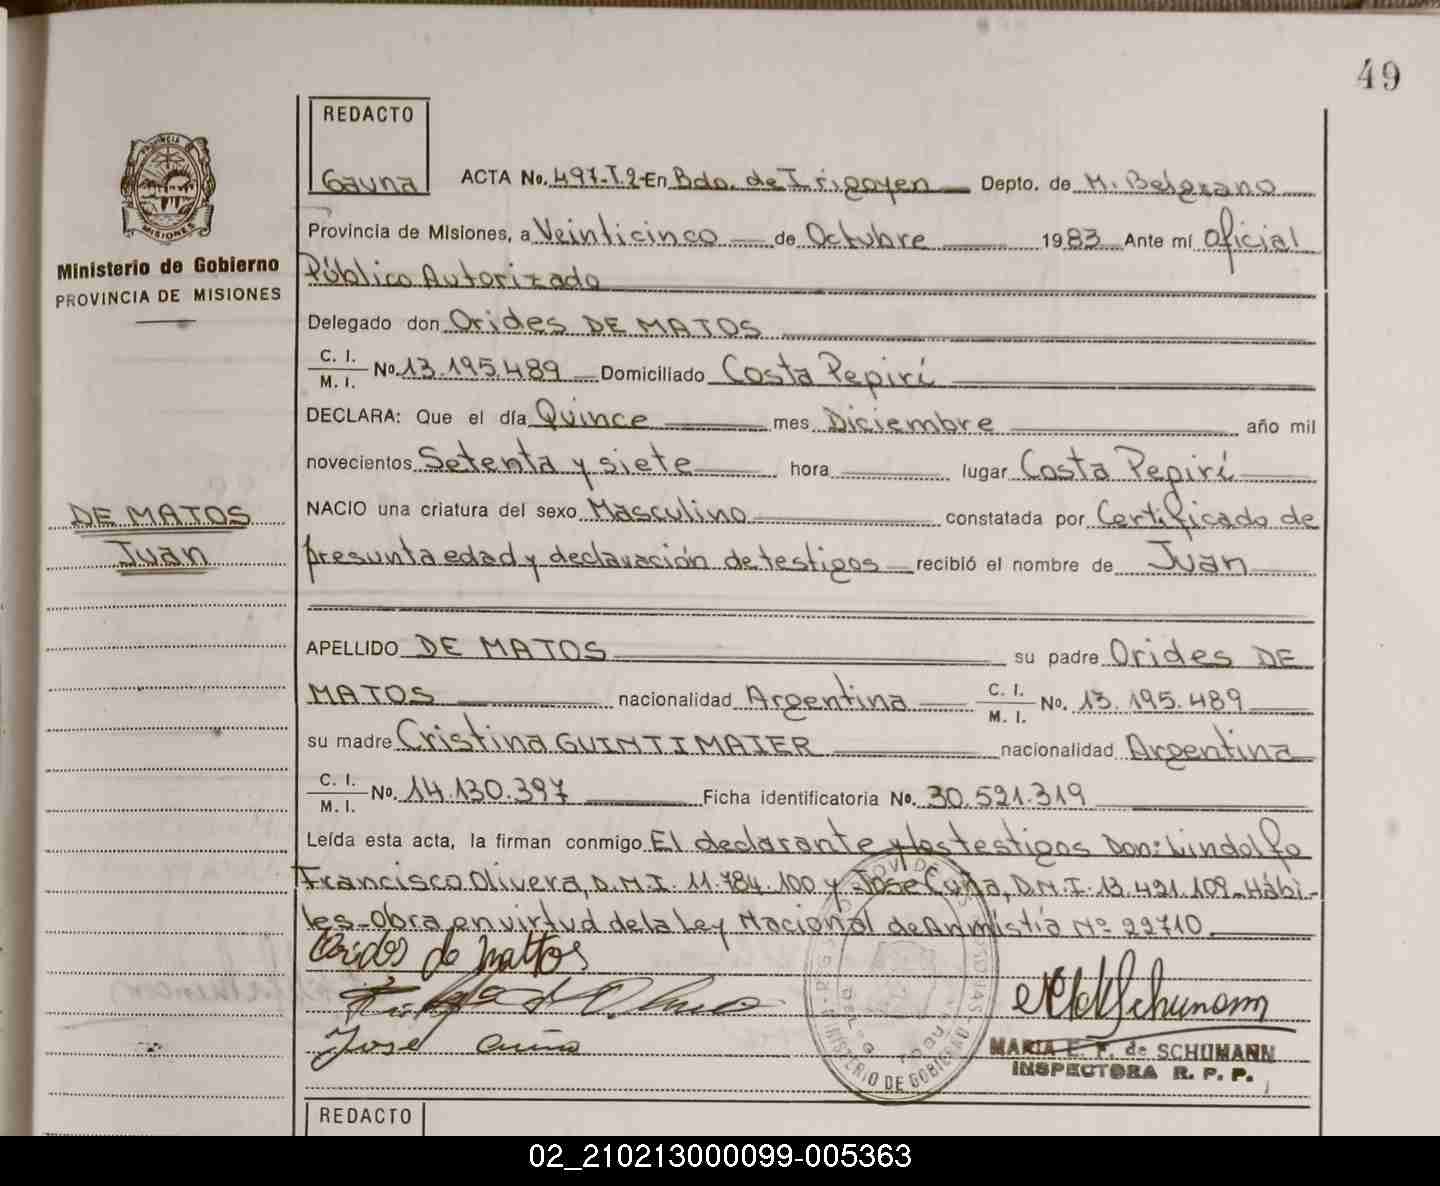 49
REDACTO
Gauna
ACTA No. 497-T.2-En Bdo. de Irigoyen Depto. de M. Belgrano
PROVINCIA DE
MISIONES
Ministerio de Gobierno
PROVINCIA DE MISIONES
Provincia de Misiones, a Veinticinco de Octubre 1983 Ante mí Oficial
Público Autorizado
Delegado don Orides DE MATOS
C. I.
M. I. No. 13.195.489 Domiciliado Costa Pepirí
DECLARA: Que el día Quince mes Diciembre año mil
novecientos Setenta y siete hora lugar Costa Pepirí
DE MATOS
Juan
NACIO una criatura del sexo Masculino constatada por Certificado de
presunta edad y declaración de testigos recibió el nombre de Juan
APELLIDO DE MATOS su padre Orides DE
MATOS nacionalidad Argentina C. I.
M. I. No. 13.195.489
su madre Cristina GUINTIMAIER nacionalidad Argentina
C. I.
M. I. No. 14.130.397 Ficha identificatoria No. 30.521.319
Leída esta acta, la firman conmigo El declarante y los testigos Don: Lindolfo
Francisco Olivera, D.M.I. 11.784.100 y Jose Cuña, D.M.I. 13.421.109-Hábi-
les-Obra en virtud de la Ley Nacional de Anmistía Nº 22710
Orides de Mattos
Jose Cuña
MINISTERIO DE GOBIERNO
MARIA E. F. de SCHUMANN
INSPECTORA R. P. P.
REDACTO
02_210213000099-005363